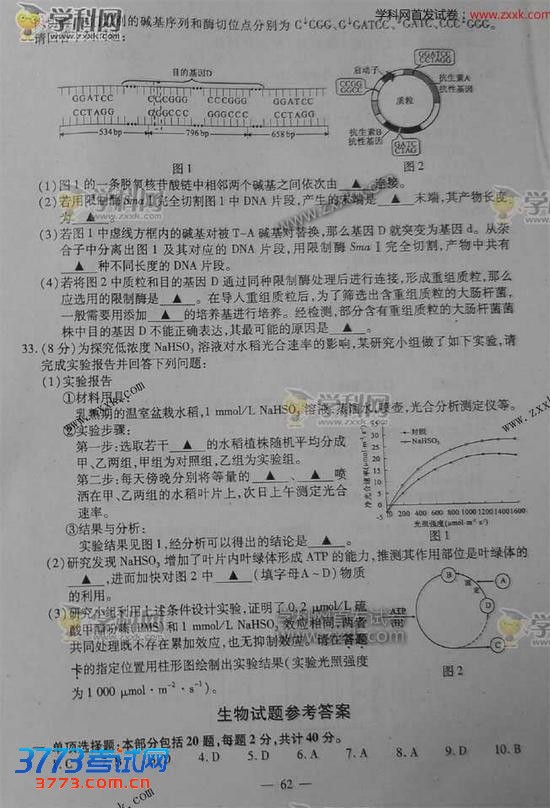 学科网首发试卷：www.zxxk.com
的碱基序列和酶切位点分别为 C↓CGG、G↓GATCC、↓GATC、CCC↓GGG。
请回答
目的基因D
GGATCC CCGGGG CCCGGG GGATCC
CCTAGG GGGCCC CCTAGG
534 bp 796 bp 658 bp
启动子
GGATCC
CCTAGG
CCGG
GGCC
抗生素A
抗性基因
质粒
抗生素B
抗性基因
GATC
CTAG
图1
图2
(1)图1的一条脱氧核苷酸链中相邻两个碱基之间依次由 ▲ 连接。
(2)若用限制酶SmaⅠ完全切割图1中DNA片段,产生的末端是 ▲ 末端,其产物长度
为 ▲ 。
(3)若图1中虚线方框内的碱基对被T-A碱基对替换,那么基因D就突变为基因d。从杂
合子中分离出图1及其对应的DNA片段,用限制酶SmaⅠ完全切割,产物中共有
▲ 种不同长度的DNA片段。
(4)若将图2中质粒和目的基因D通过同种限制酶处理后进行连接,形成重组质粒,那么
应选用的限制酶是 ▲ 。在导入重组质粒后,为了筛选出含重组质粒的大肠杆菌,
一般需要用添加 ▲ 的培养基进行培养。经检测,部分含有重组质粒的大肠杆菌菌
株中目的基因D不能正确表达,其最可能的原因是 ▲ 。
33.(8分)为探究低浓度NaHSO₃溶液对水稻光合速率的影响,某研究小组做了如下实验,请
完成实验报告并回答下列问题:
(1)实验报告
①材料用具:
乳熟期的温室盆栽水稻,1 mmol/L NaHSO₃溶液,蒸馏水,喷壶,光合分析测定仪等。
②实验步骤:
第一步:选取若干 ▲ 的水稻植株随机平均分成
甲、乙两组,甲组为对照组,乙组为实验组。
第二步:每天傍晚分别将等量的 ▲ 、 ▲ 喷
洒在甲、乙两组的水稻叶片上,次日上午测定光合
速率。
③结果与分析:
实验结果见图1,经分析可以得出的结论是 ▲ 。
净光合速率(μmol·m⁻²·s⁻¹)
35
30
25
20
15
10
5
0
-5
对照
NaHSO₃
200 400 600 800 1000 1200 1400 1600
光照强度(μmol·m⁻²·s⁻¹)
图1
(2)研究发现NaHSO₃增加了叶片内叶绿体形成ATP的能力,推测其作用部位是叶绿体的
▲ ,进而加快对图2中 ▲ (填字母A~D)物质
的利用。
(3)研究小组利用上述条件设计实验,证明了0.2 μmol/L硫
酸甲酯吩嗪(PMS)和1 mmol/L NaHSO₃效应相同,两者
共同处理既不存在累加效应,也无抑制效应。请在答题
卡的指定位置用柱形图绘制出实验结果(实验光照强度
为1 000 μmol·m⁻²·s⁻¹)。
ATP
[H]
B
固定
A
D
C
图2
生物试题参考答案
单项选择题:本部分包括20题,每题2分,共计40分。
4. D 5. A 6. A 7. A 8. A 9. D 10. B
— 62 —
学科网
www.zxxk.com
3773考试网
3773.com.cn